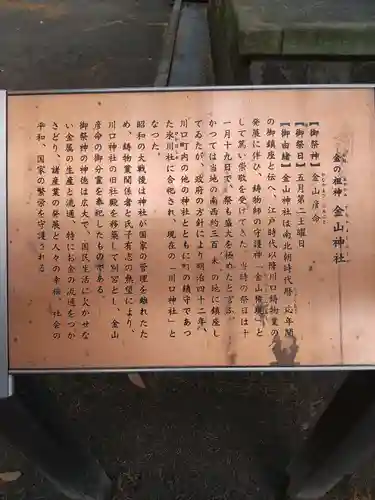 金の祖神 金山神社
【御祭神】金山彦命
【御祭日】五月第二土曜日
【御由緒】金山神社は南北朝時代暦応年間
の御鎮座と伝へ、江戸時代以降川口鋳物業の
発展に伴ひ、鋳物師の守護神「金山権現」と
して篤い崇敬を受けてきた。当時の祭日は十
一月十九日で、祭も盛大を極めたと言ふ。
かつては当地の南西約三百米の地に鎮座し
てゐたが、政府の方針により明治四十二年、
川口町内の他の神社とともに町の鎮守であつ
た氷川社に合祀され、現在の「川口神社」と
なつた。
昭和の大戦後は神社が国家の管理を離れたた
め、鋳物業関係者と氏子有志の熱望により、
川口神社の旧社殿を移築して別宮とし、金山
彦命の御分霊を奉祀したものである。
御祭神の神徳は広大で、国民生活に欠かせな
い金属の生産と流通、特にお金の流通をつか
さどり、諸産業の発展と人々の幸福、社会の
平和、国家の繁栄を守護される